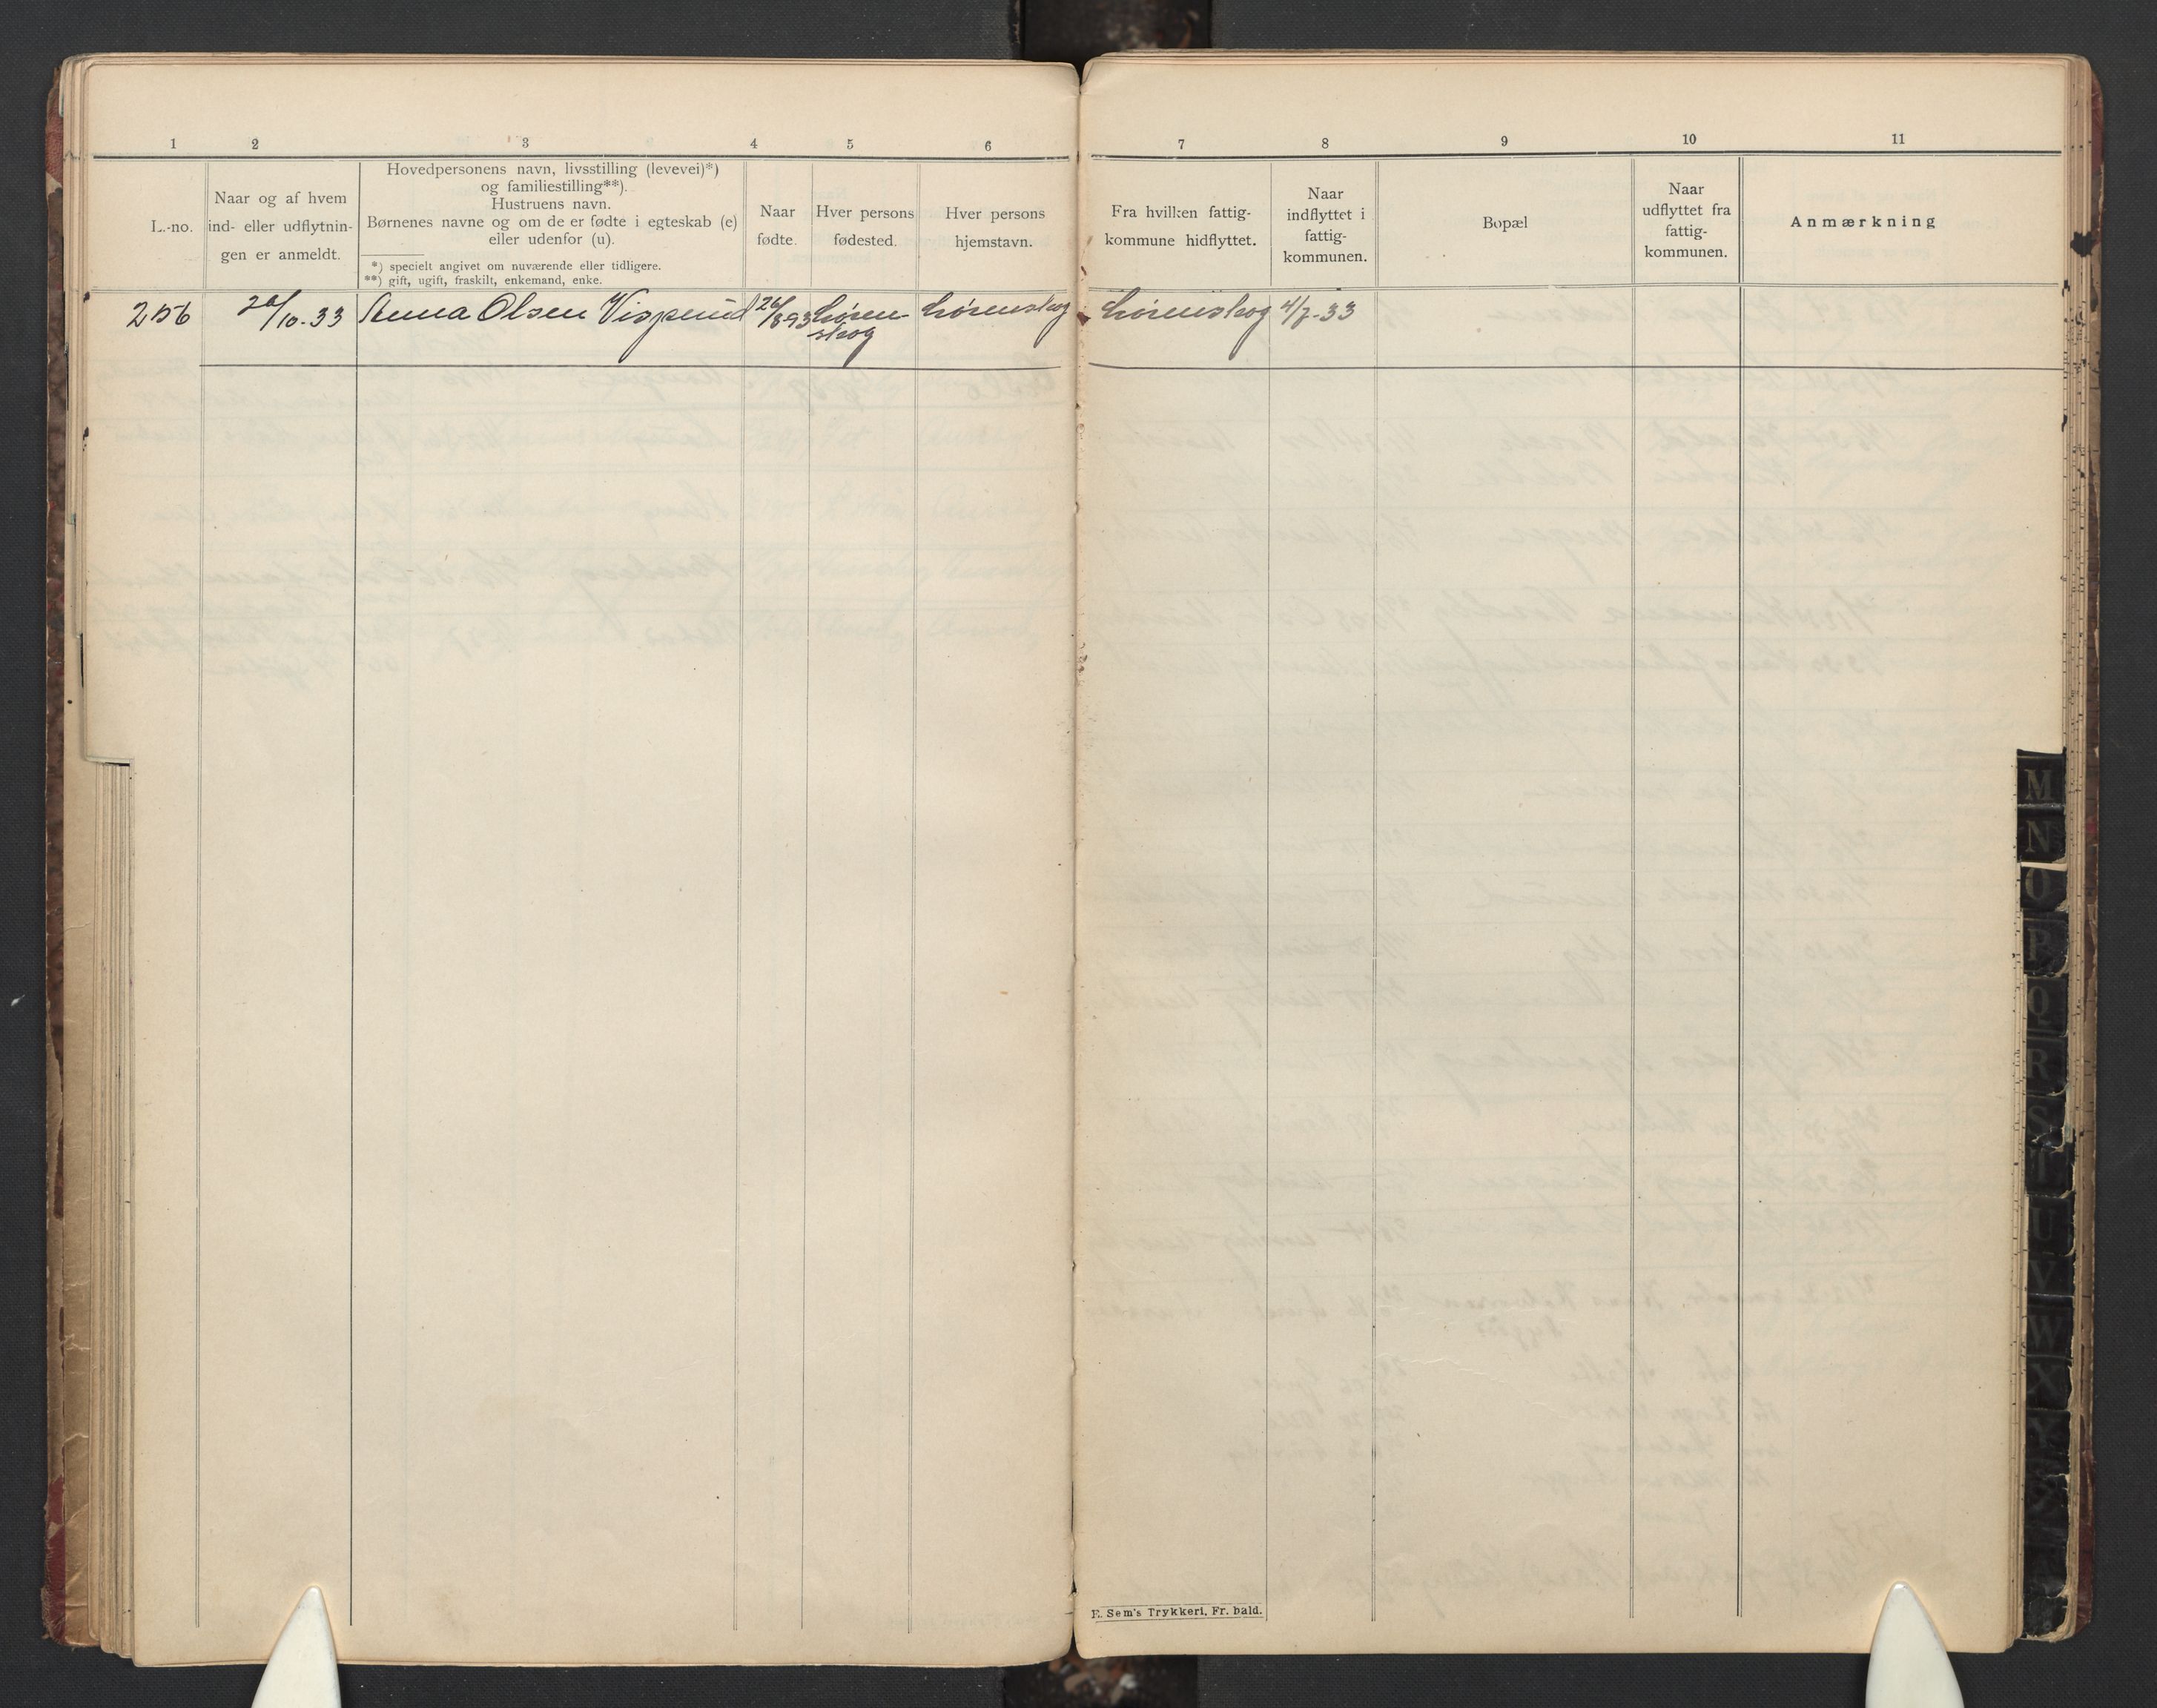 1 2 3 4 5 6 7 8 9 10 11
L.-no.
Naar og af hvem
ind- eller udflytnin-
gen er anmeldt.
Hovedpersonens navn, livsstilling (levevei)*)
og familiestilling**).
Hustruens navn.
Børnenes navne og om de er fødte i egteskab (e)
eller udenfor (u).
*) specielt angivet om nuværende eller tidligere.
**) gift, ugift, fraskilt, enkemand, enke.
Naar
fødte.
Hver persons
fødested.
Hver persons
hjemstavn.
Fra hvilken fattig-
kommune hidflyttet.
Naar
indflyttet i
fattig-
kommunen.
Bopæl
Naar
udflyttet fra
fattig-
kommunen.
Anmærkning
256 /10-33 Anna Olsen Visperud 26/8 93 Løren- Lørenskog Lørenskog 4/7-33
skog
E. Sem's Trykkeri, Fr. hald.
M
N
O
P
Q
R
S
T
U
V
W
X
Y